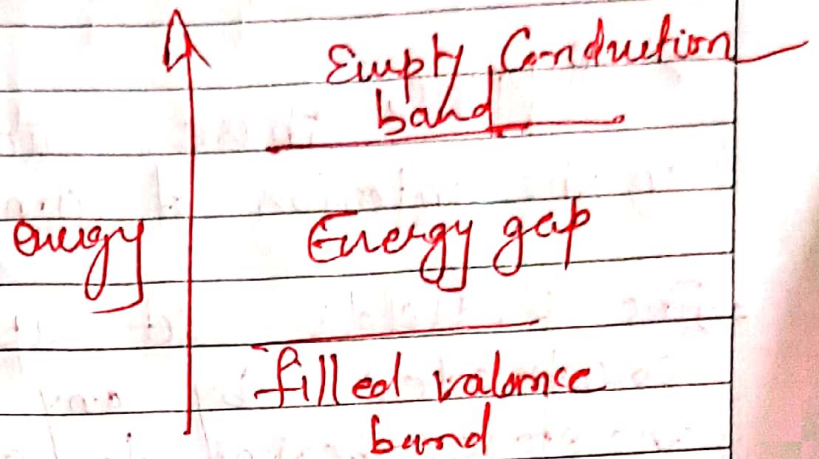 Empty Conduction
band
energy
Energy gap
filled valance
band